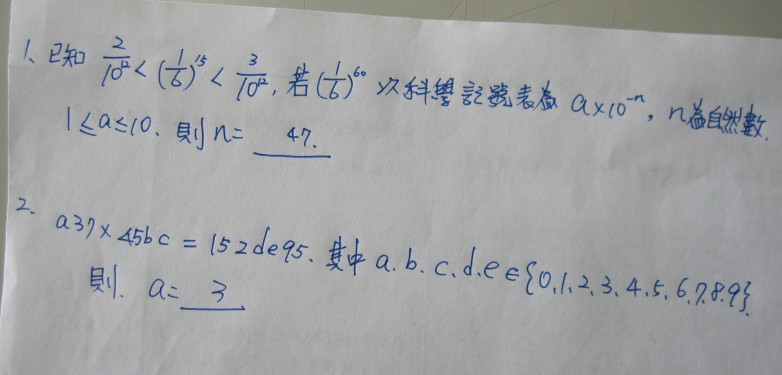 1、已知 2/10¹² < (1/6)¹⁵ < 3/10¹², 若 (1/6)⁶⁰ 以科學記號表為 a×10⁻ⁿ, n為自然數.
1≤a≤10. 則 n= 47.
2、a37×45bc = 152de95. 其中 a.b.c.d.e∈{0.1.2.3.4.5.6.7.8.9}.
則. a= 3